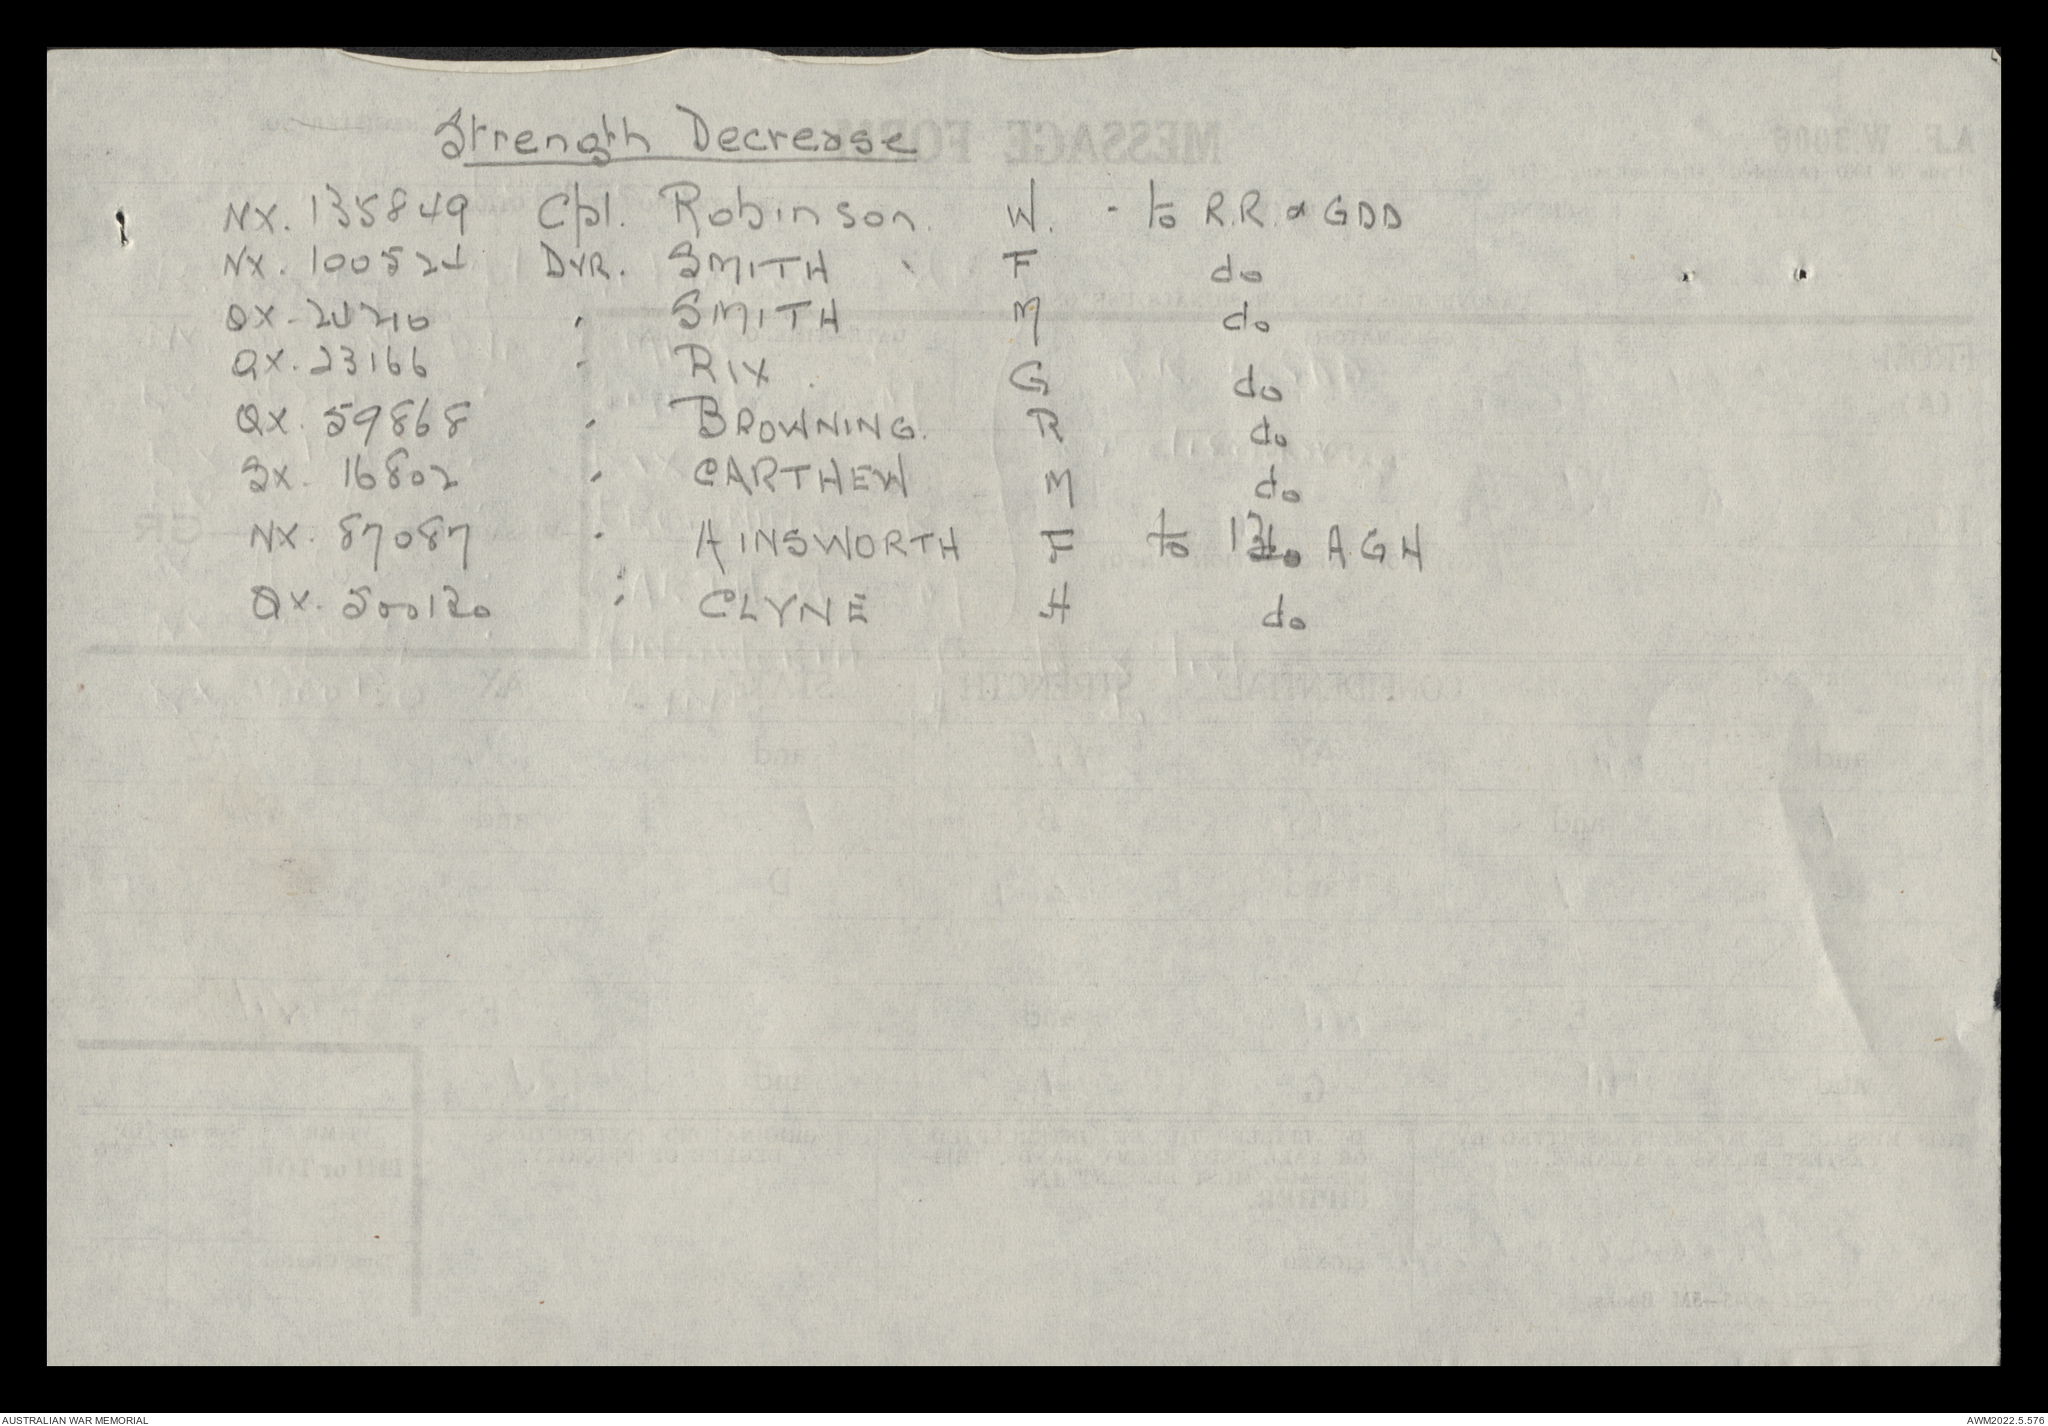 Strength Decrease
NX. 135849 Cpl. Robinson. W. - to R.R. & GDD
NX. 100524 DVR. SMITH F do
QX. " SMITH M do
QX. 23166 " RIX G do
QX. 59868 " BROWNING. R do
SX. 16802 " CARTHEW M do
NX. 87087 " AINSWORTH F to AGH
QX. 500120 " CLYNE H do
AUSTRALIAN WAR MEMORIAL
AWM2022.5.576